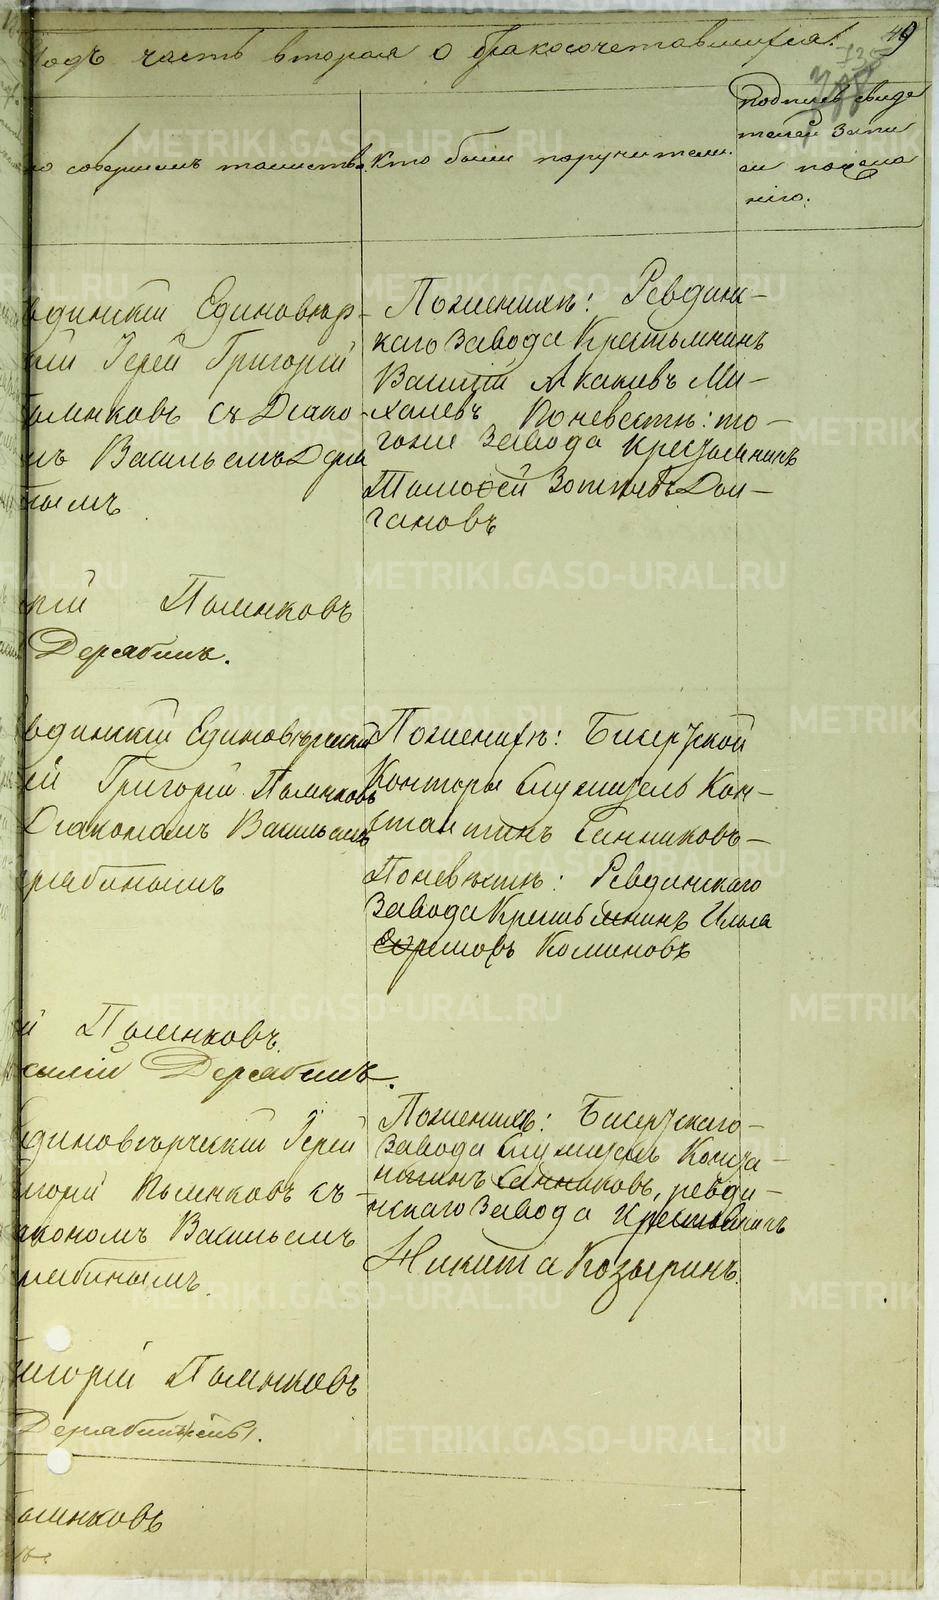 Годъ часть вторая о бракосочетавшихся. 49
738
то совершалъ таинство. Кто были поручители.
подпись свиде
телей запи
си по жела
нію.
вдинскій Единовѣр-
кій Іерей Григорій
Полинковъ съ Діако-
мъ Васильемъ Деря
нымъ
По женихѣ: Ревдинс-
каго завода Крестьянинъ
Василій Акакиевъ Ми-
халевъ По невестѣ: то-
гоже завода крестьянинъ
Тимофей Зотиевъ Дол-
гановъ
рій Полинковъ
Дерябинъ.
вдинскій Единовѣрческій
ей Григорій Полинковъ
Діакономъ Васильемъ
рябинымъ
По женихѣ: Бисертской
Конторы Служитель Кон-
стантинъ Санниковъ-
По невѣстѣ: Ревдинскаго
Завода Крестьянинъ Илья
Ефимовъ Коминовъ
й Полинковъ.
силій Дерябинъ.
Единовѣрческій Іерей
игорій Полинковъ съ-
акономъ Васильемъ
рябинымъ.
По женихѣ: Бисертскаго-
завода Служитель Конста-
нтинъ Санниковъ, ревди-
нскаго Завода Крестьянинъ
Никита Козыринъ.
игорій Полинковъ
Дерябинъ
олинковъ
METRIKI.GASO-URAL.RU